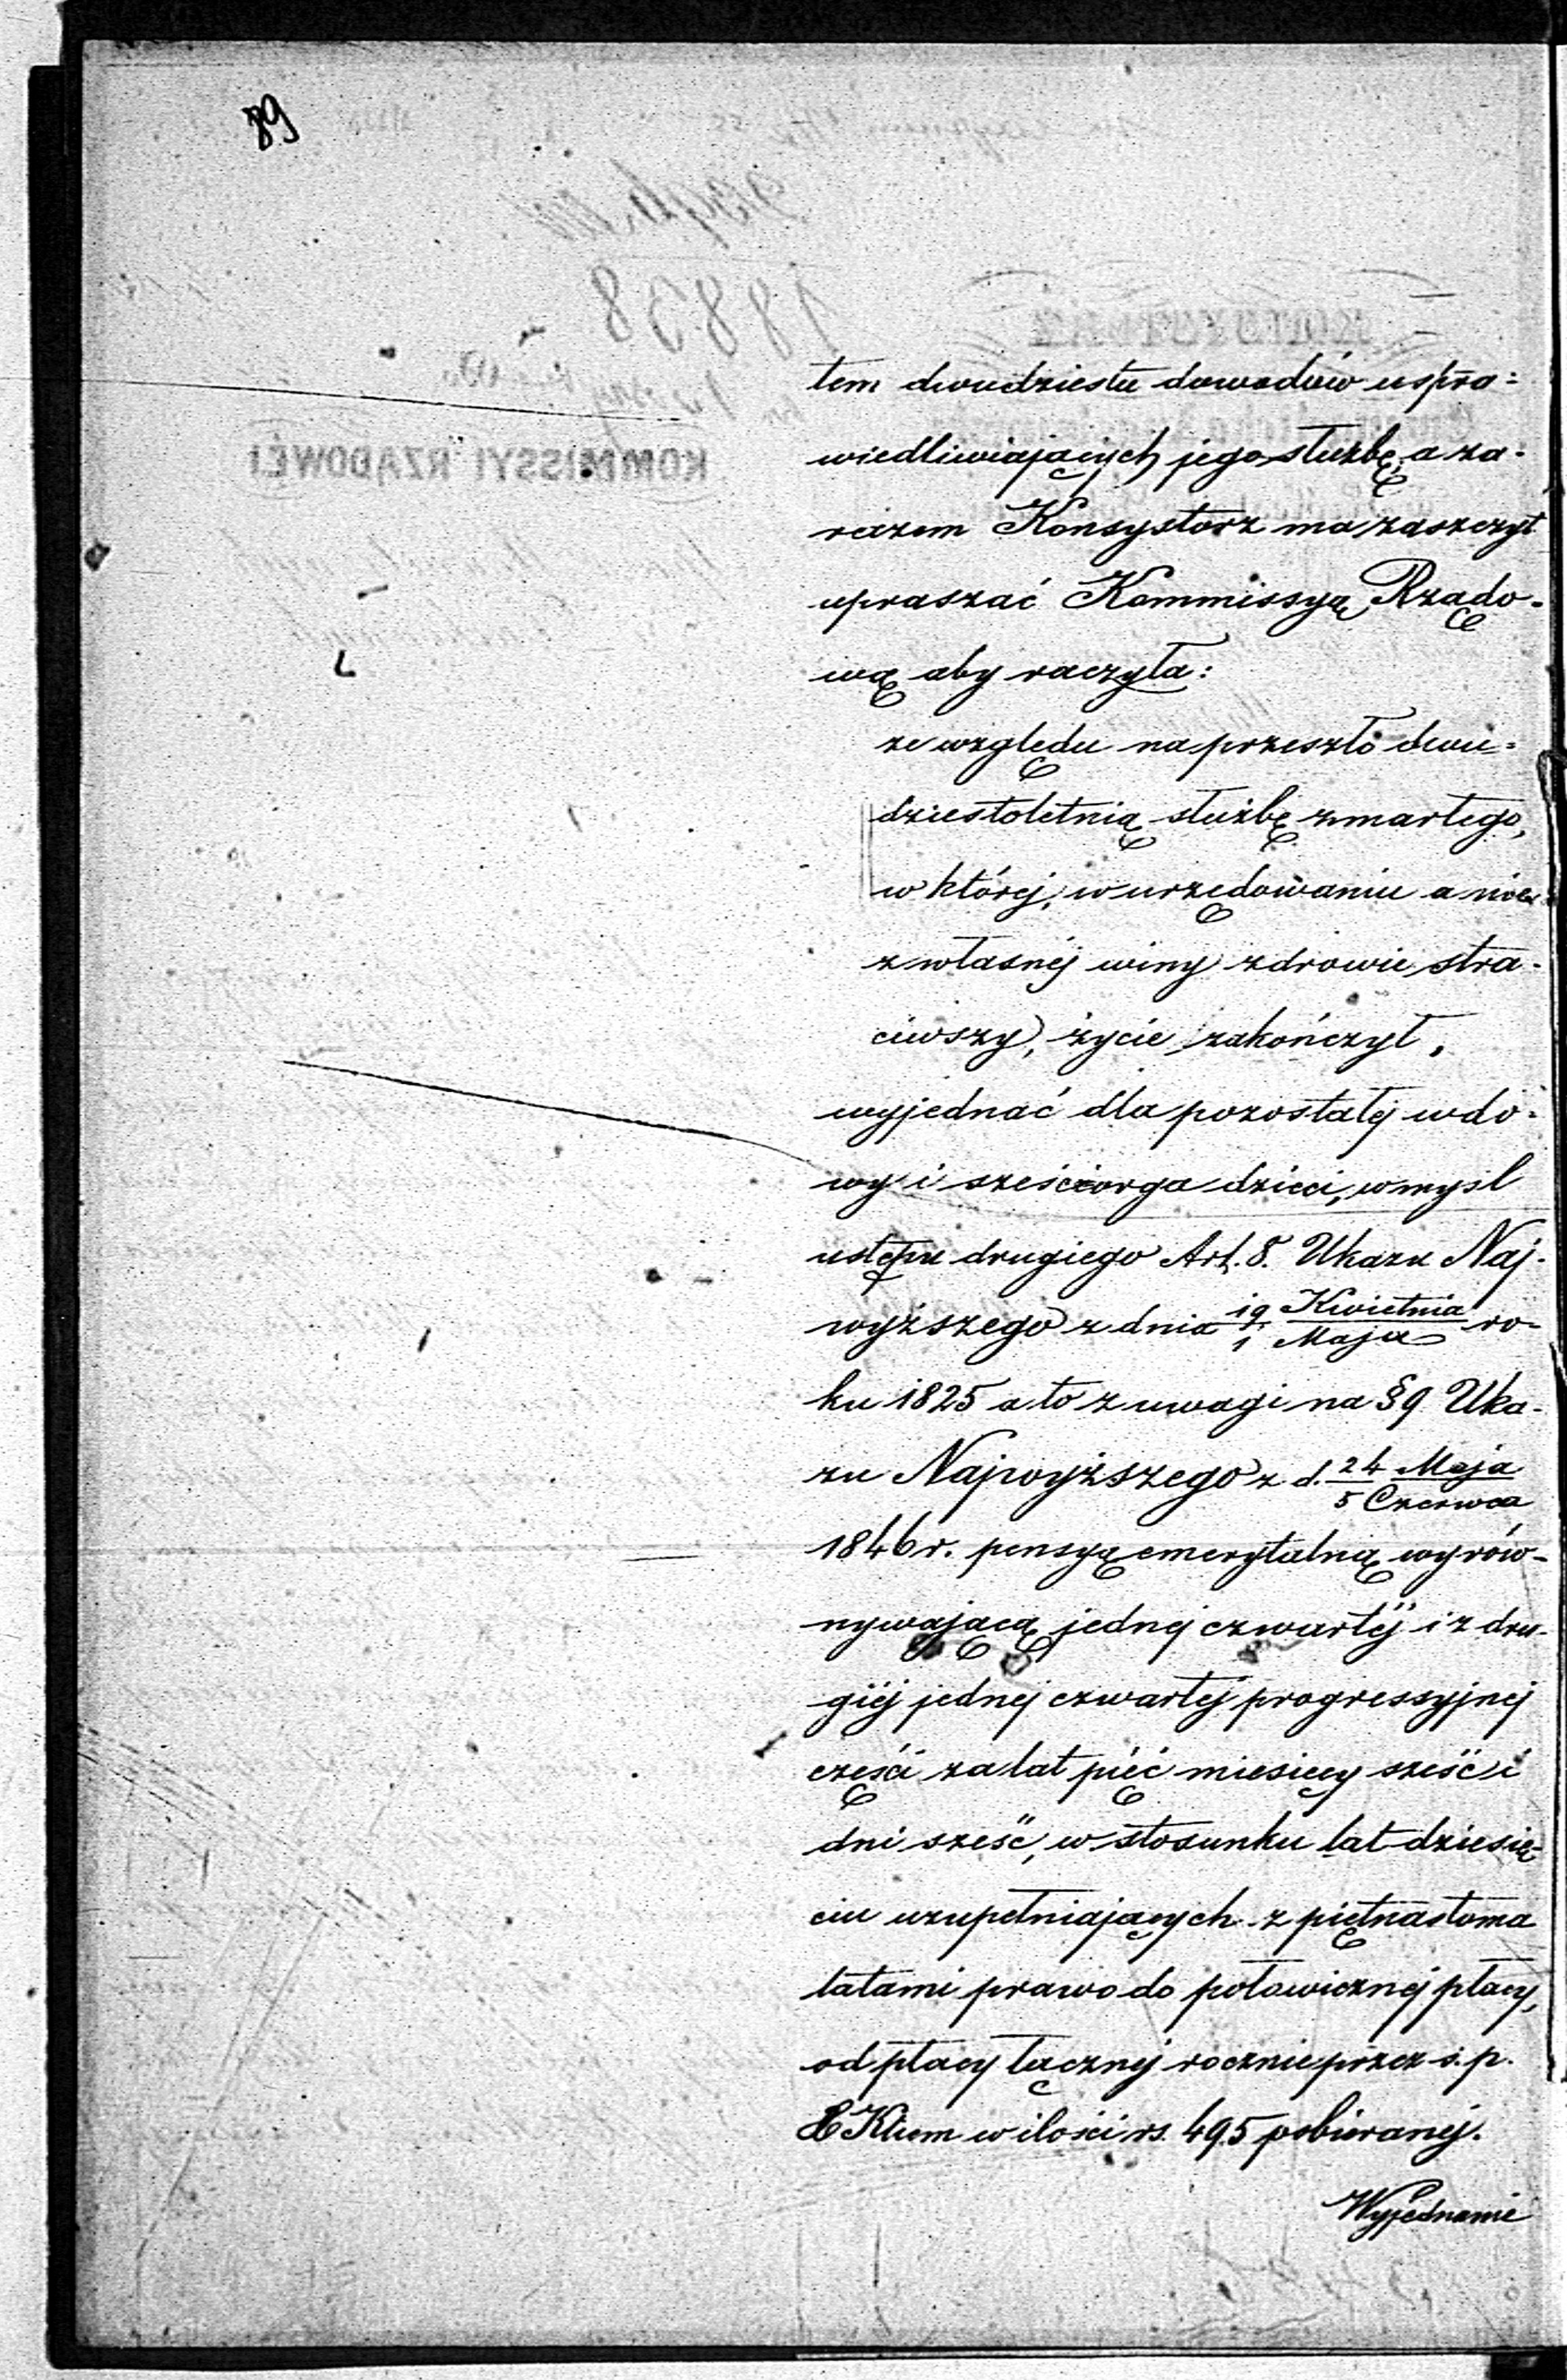 89
tem dwudziestu dowodów uspra=
wiedliwiających jego służbę, a za=
razem Konsystorz ma zaszczyt
upraszać Kommissyą Rządo-
wą aby raczyła:
ze względu na przeszło dwu=
dziestoletnią służbę zmarłego,
w której, w urzędowaniu a nie
z własnéj winy zdrowie stra-
ciwszy, życie zakończył,
wyjednać dla pozostałej wdo=
wy i sześciorga dzieci, w mysl
ustępu drugiego Art. 8. Ukazu Naj-
wyższego z dnia 19/1 Kwietnia/Maja ro-
ku 1825 a to z uwagi na § 9 Uka-
zu Najwyższego z d. 24/5 Maja/Czerwca
1846 r. pensyą emerytalną wyrów-
nywającą jednej czwartéj i z dru-
giéj jednej czwartéj progressyjnej
części za lat pięć miesięcy sześć i
dni sześć, w stosunku lat dziesię-
ciu uzupełniających z piętnastoma
latami prawo do połowicznej płacy,
od płacy łącznej rocznie przez ś. p.
Klum w ilości rs. 495 pobieranéj.
Wyjednanie
18838
KOMMISSYI RZĄDOWÉJ